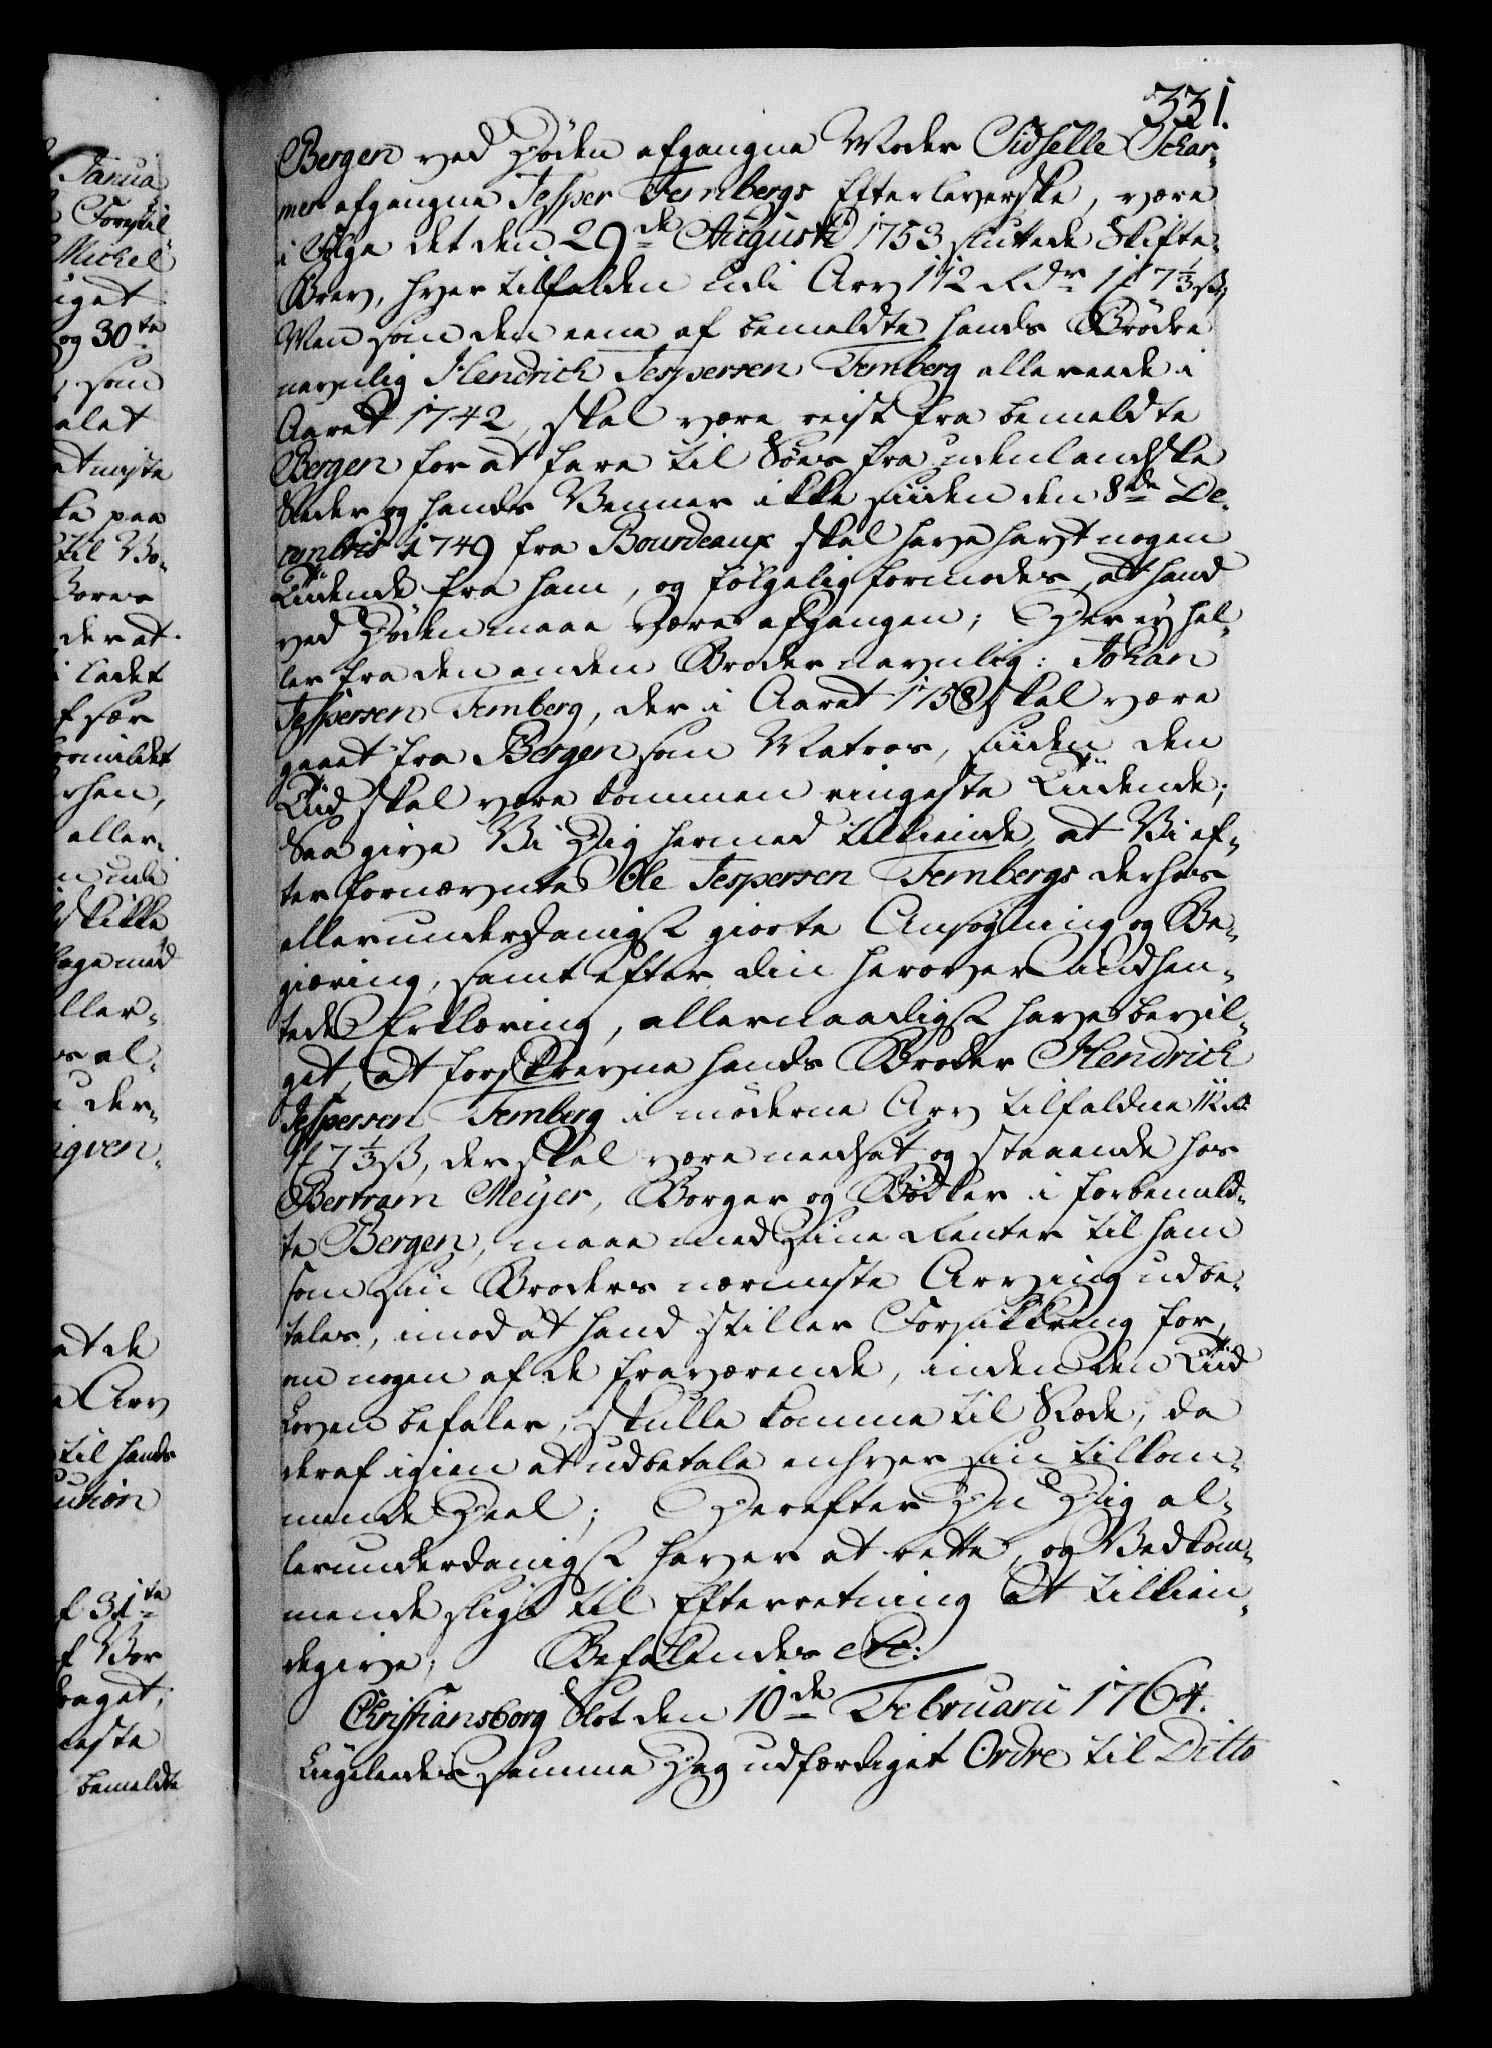 331.
Bergen ved Døden afgangne Moder Sidselle Schar-
mer afgangne Jesper Fernbergs Efterleverske, være
i Følge det den 29de Augusti 1753 sluttede Skifte-
Brev, hver tilfalden udi Arv 112 Rdr 1 ₰ 7⅓ ß;
Men som den eene af bemeldte hands Brødre
navnlig Hendrich Jespersen Fernberg allereede i
Aaret 1742, skal være reist fra bemeldte
Bergen for at fare til Søes fra udenlandske
Steder og hands Venner ikke siiden den 8de De-
cembris 1749 fra Bourdeaux skal have havt nogen
Tiidende fra ham, og følgelig formodes, at hand
ved Døden maae være afgangen; Der ey hel-
ler fra den anden Broder navnlig: Johan
Jespersen Fernberg, der i Aaret 1758 skal være
gaaet fra Bergen som Matros, siiden den
Tiid skal være kommen ringeste Tiidende;
Saa give Vi Dig hermed tilkiende, at Vi ef-
ter fornævnte Ole Jespersen Fernbergs derhos
allerunderdanigst giorte Ansøgning og Be-
giæring, samt efter din herover indhen-
tede Erklæring, allernaadigst have bevil-
get, at forskrevne hands Broder Hendrich
Jespersen Fernberg i møderne Arv tilfaldne 112 Rdr
1 ₰ 7⅓ ß, der skal være needsat og staaende hos
Bertram Meyer, Borger og Bødker i forbemeld-
te Bergen, maae med Sine Renter til ham
som Sin Broders nærmeste Arving udbe-
tales, imod at hand stiller Forsikkring for,
om nogen af de fraværende, inden den Tiid
Loven befaler, skulle komme til Stæde, da
deraf igien at udbetale enhver sin tilkom-
mende Deel; Derefter Du Dig al-
lerunderdanigst haver at rette, og Vedkom-
mende sligt til Efterretning at tilkien-
degive; Befalendes etc:
Christiansborg Slot den 10de Februarii 1764.
Liigeledes samme Dag udfærdiget Ordre til Ditto